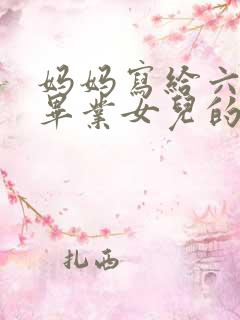 妈妈寫給六
畢業女兒的
扎西